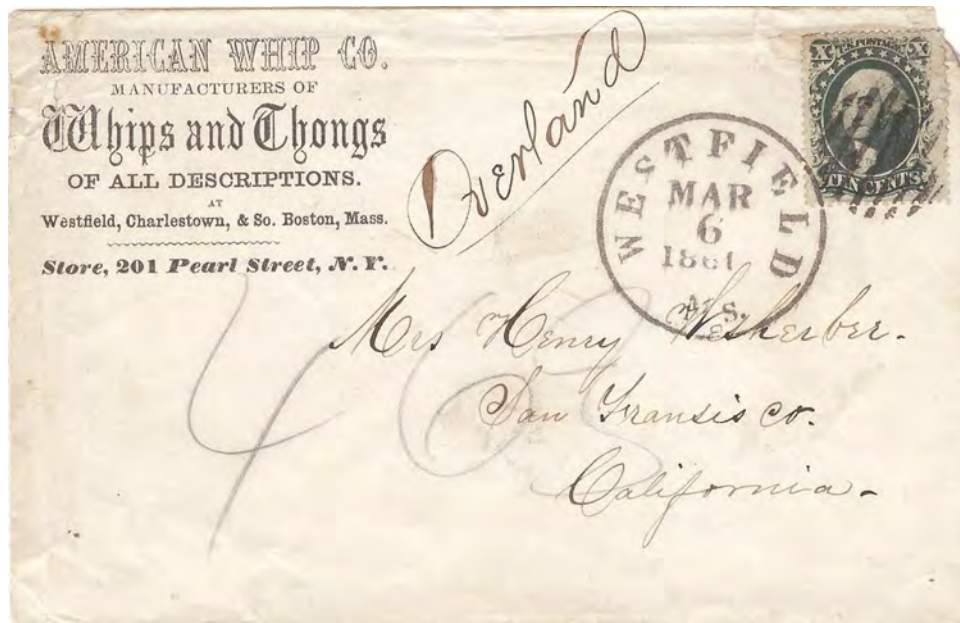 AMERICAN WHIP CO.
MANUFACTURERS OF
Whips and Thongs
OF ALL DESCRIPTIONS.
AT
Westfield, Charlestown, & So. Boston, Mass.
Store, 201 Pearl Street, N.Y.
Overland
WESTFIELD
MAR
6
1861
X U.S. POSTAGE X
TEN CENTS
Mrs Henry
San Fransisco.
California